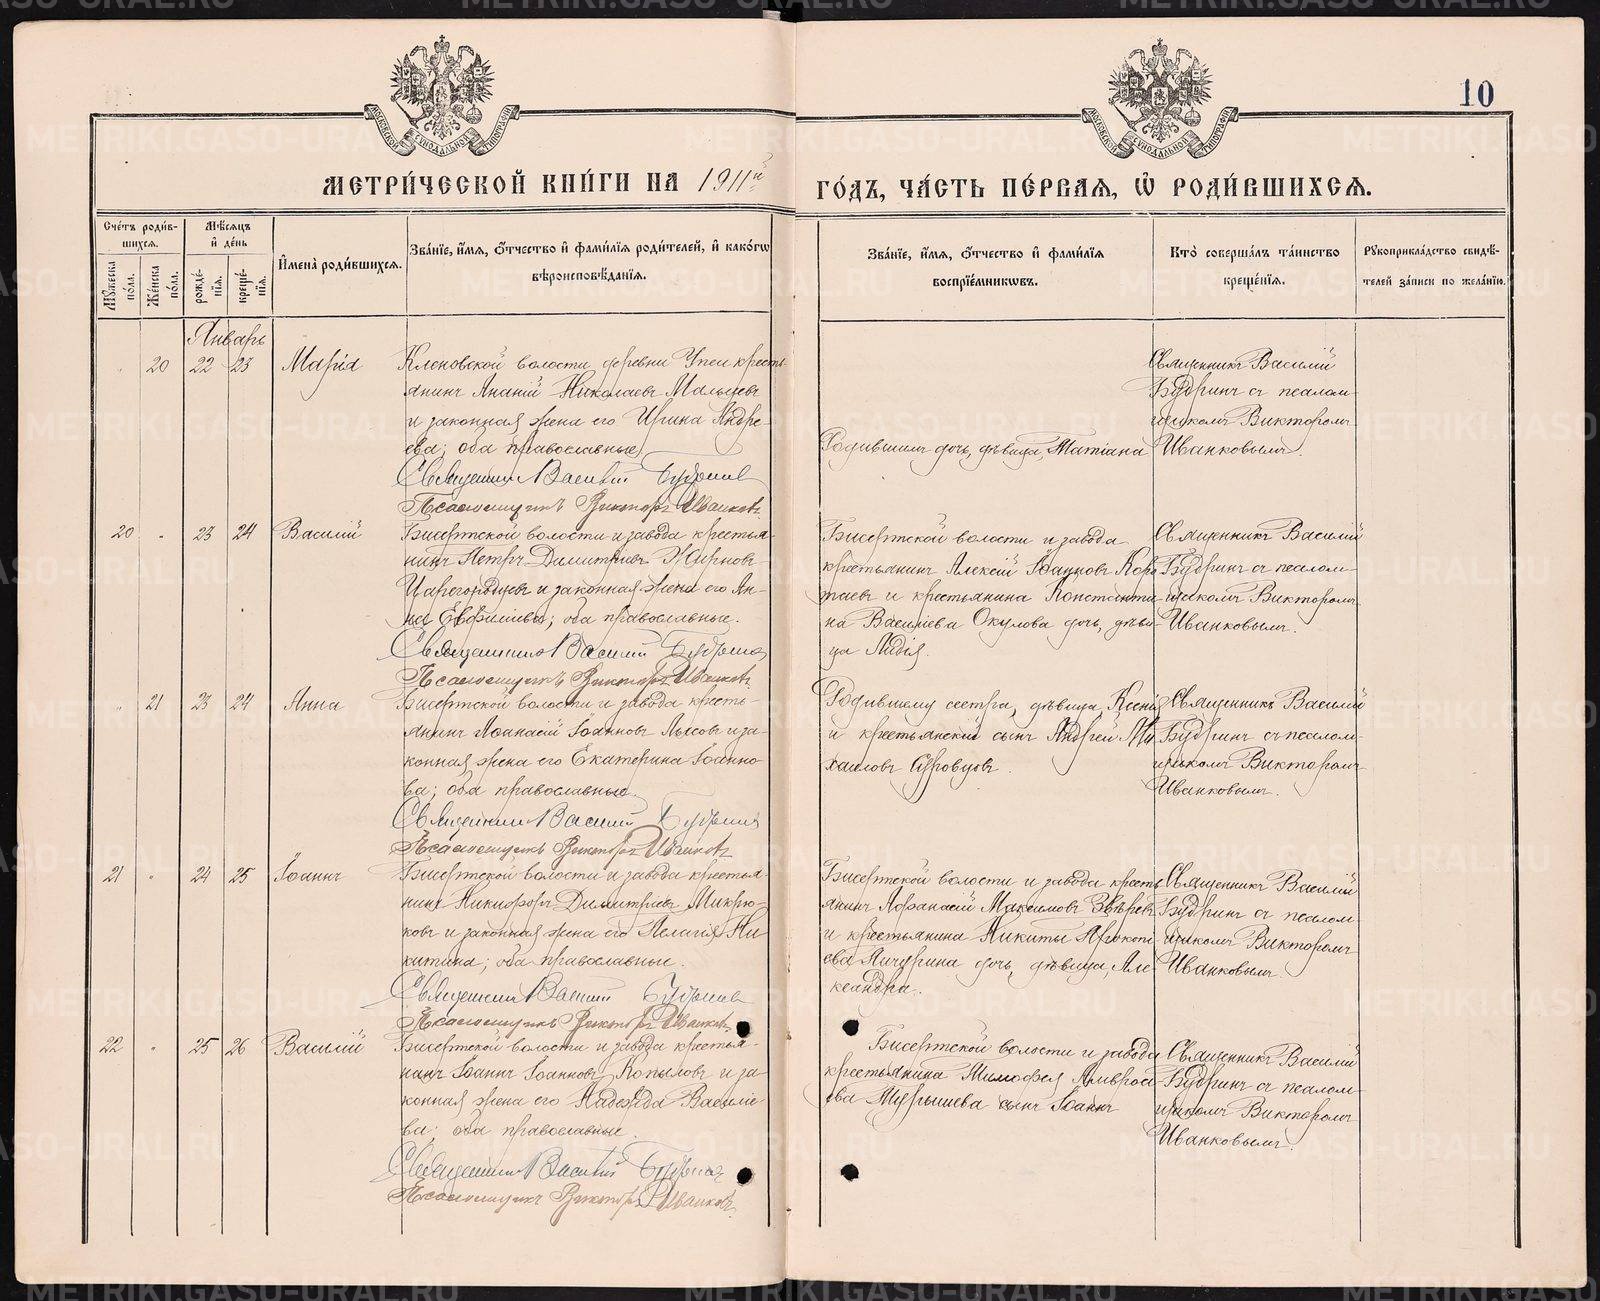 10
МЕТРИ́ЧЕСКОЙ КНИ́ГИ НА 1911й ГО́ДЪ, ЧА́СТЬ ПЕ́РВАѦ, Ѡ҆ РОДИ́ВШИХСѦ.
МОСКОВСКОЙ СѴНОДАЛЬНОЙ ТИПОГРАФІИ
МОСКОВСКОЙ СѴНОДАЛЬНОЙ ТИПОГРАФІИ
Сче́тъ роди́в-
шихсѧ.
Мꙋжеска по́лл.
Же́нска по́лл.
Мѣ́сѧцъ
и҆ де́нь
рожде́-
нїѧ.
креще́-
нїѧ.
И҆мена̀ роди́вшихсѧ.
Зва́нїе, и҆́мѧ, ѻ҆́тчество и҆ фами́лїѧ роди́телей, и҆ како́гѡ
вѣроисповѣ́данїѧ.
Зва́нїе, и҆́мѧ, ѻ҆́тчество и҆ фами́лїѧ
воспрїе́мникѡвъ.
Кто̀ соверша́лъ та́инство
креще́нїѧ.
Рꙋкоприкла́дство свидѣ́-
телей за́писи по жела́нїю.
Январь
20 22 23 Марія
Кленовской волости деревни Упеи кресть-
янинъ Ананій Николаевъ Мальцевъ
и законная жена его Ирина Андре-
ева; оба православные
Священникъ Василій Будринъ
Псаломщикъ Викторъ Иванковъ
Родившимъ дочь, дѣвица, Татіана
Священникъ Василій
Будринъ съ псалом-
щикомъ Викторомъ
Иванковымъ.
20 23 24 Василій
Бисертской волости и завода крестья-
нинъ Петръ Димитріевъ Жирновъ
Царегородцевъ и законная жена его Ан-
на Евфиміева; оба православные.
Священникъ Василій Будринъ
Псаломщикъ Викторъ Иванковъ
Бисертской волости и завода
крестьянинъ Алексій Іоанновъ Коро
таевъ и крестьянина Константи
на Васильева Окулова дочь, дѣви-
ца Лидія.
Священникъ Василій
Будринъ съ псалом-
щикомъ Викторомъ
Иванковымъ.
21 23 24 Анна
Бисертской волости и завода кресть-
янинъ Аѳанасій Іоанновъ Лысовъ и за-
конная жена его Екатерина Іоанно-
ва; оба православные.
Священникъ Василій Будринъ
Псаломщикъ Викторъ Иванковъ
Родившему сестра, дѣвица, Ксенія
и крестьянскій сынъ Андрей Ми
хаиловъ Суровцовъ.
Священникъ Василій
Будринъ съ псалом-
щикомъ Викторомъ
Иванковымъ.
21 24 25 Іоаннъ
Бисертской волости и завода крестья
нинъ Никифоръ Димитріевъ Микрю-
ковъ и законная жена его Пелагія Ни-
китина; оба православные.
Священникъ Василій Будринъ
Псаломщикъ Викторъ Иванковъ
Бисертской волости и завода кресть
янинъ Аѳанасій Максимовъ Звѣревъ
и крестьянина Никиты Прокопі
ева Пичурина дочь, дѣвица, Але
ксандра.
Священникъ Василій
Будринъ съ псалом-
щикомъ Викторомъ
Иванковымъ
22 25 26 Василій
Бисертской волости и завода крестья-
нинъ Іоаннъ Іоанновъ Копыловъ и за-
конная жена его Надежда Василіе-
ва; оба православные.
Священникъ Василій Будринъ
Псаломщикъ Викторъ Иванковъ
Бисертской волости и завода
крестьянина Тимоѳея Амвросі-
ева Турышева сынъ Іоаннъ
Священникъ Василій
Будринъ съ псалом-
щикомъ Викторомъ
Иванковымъ.